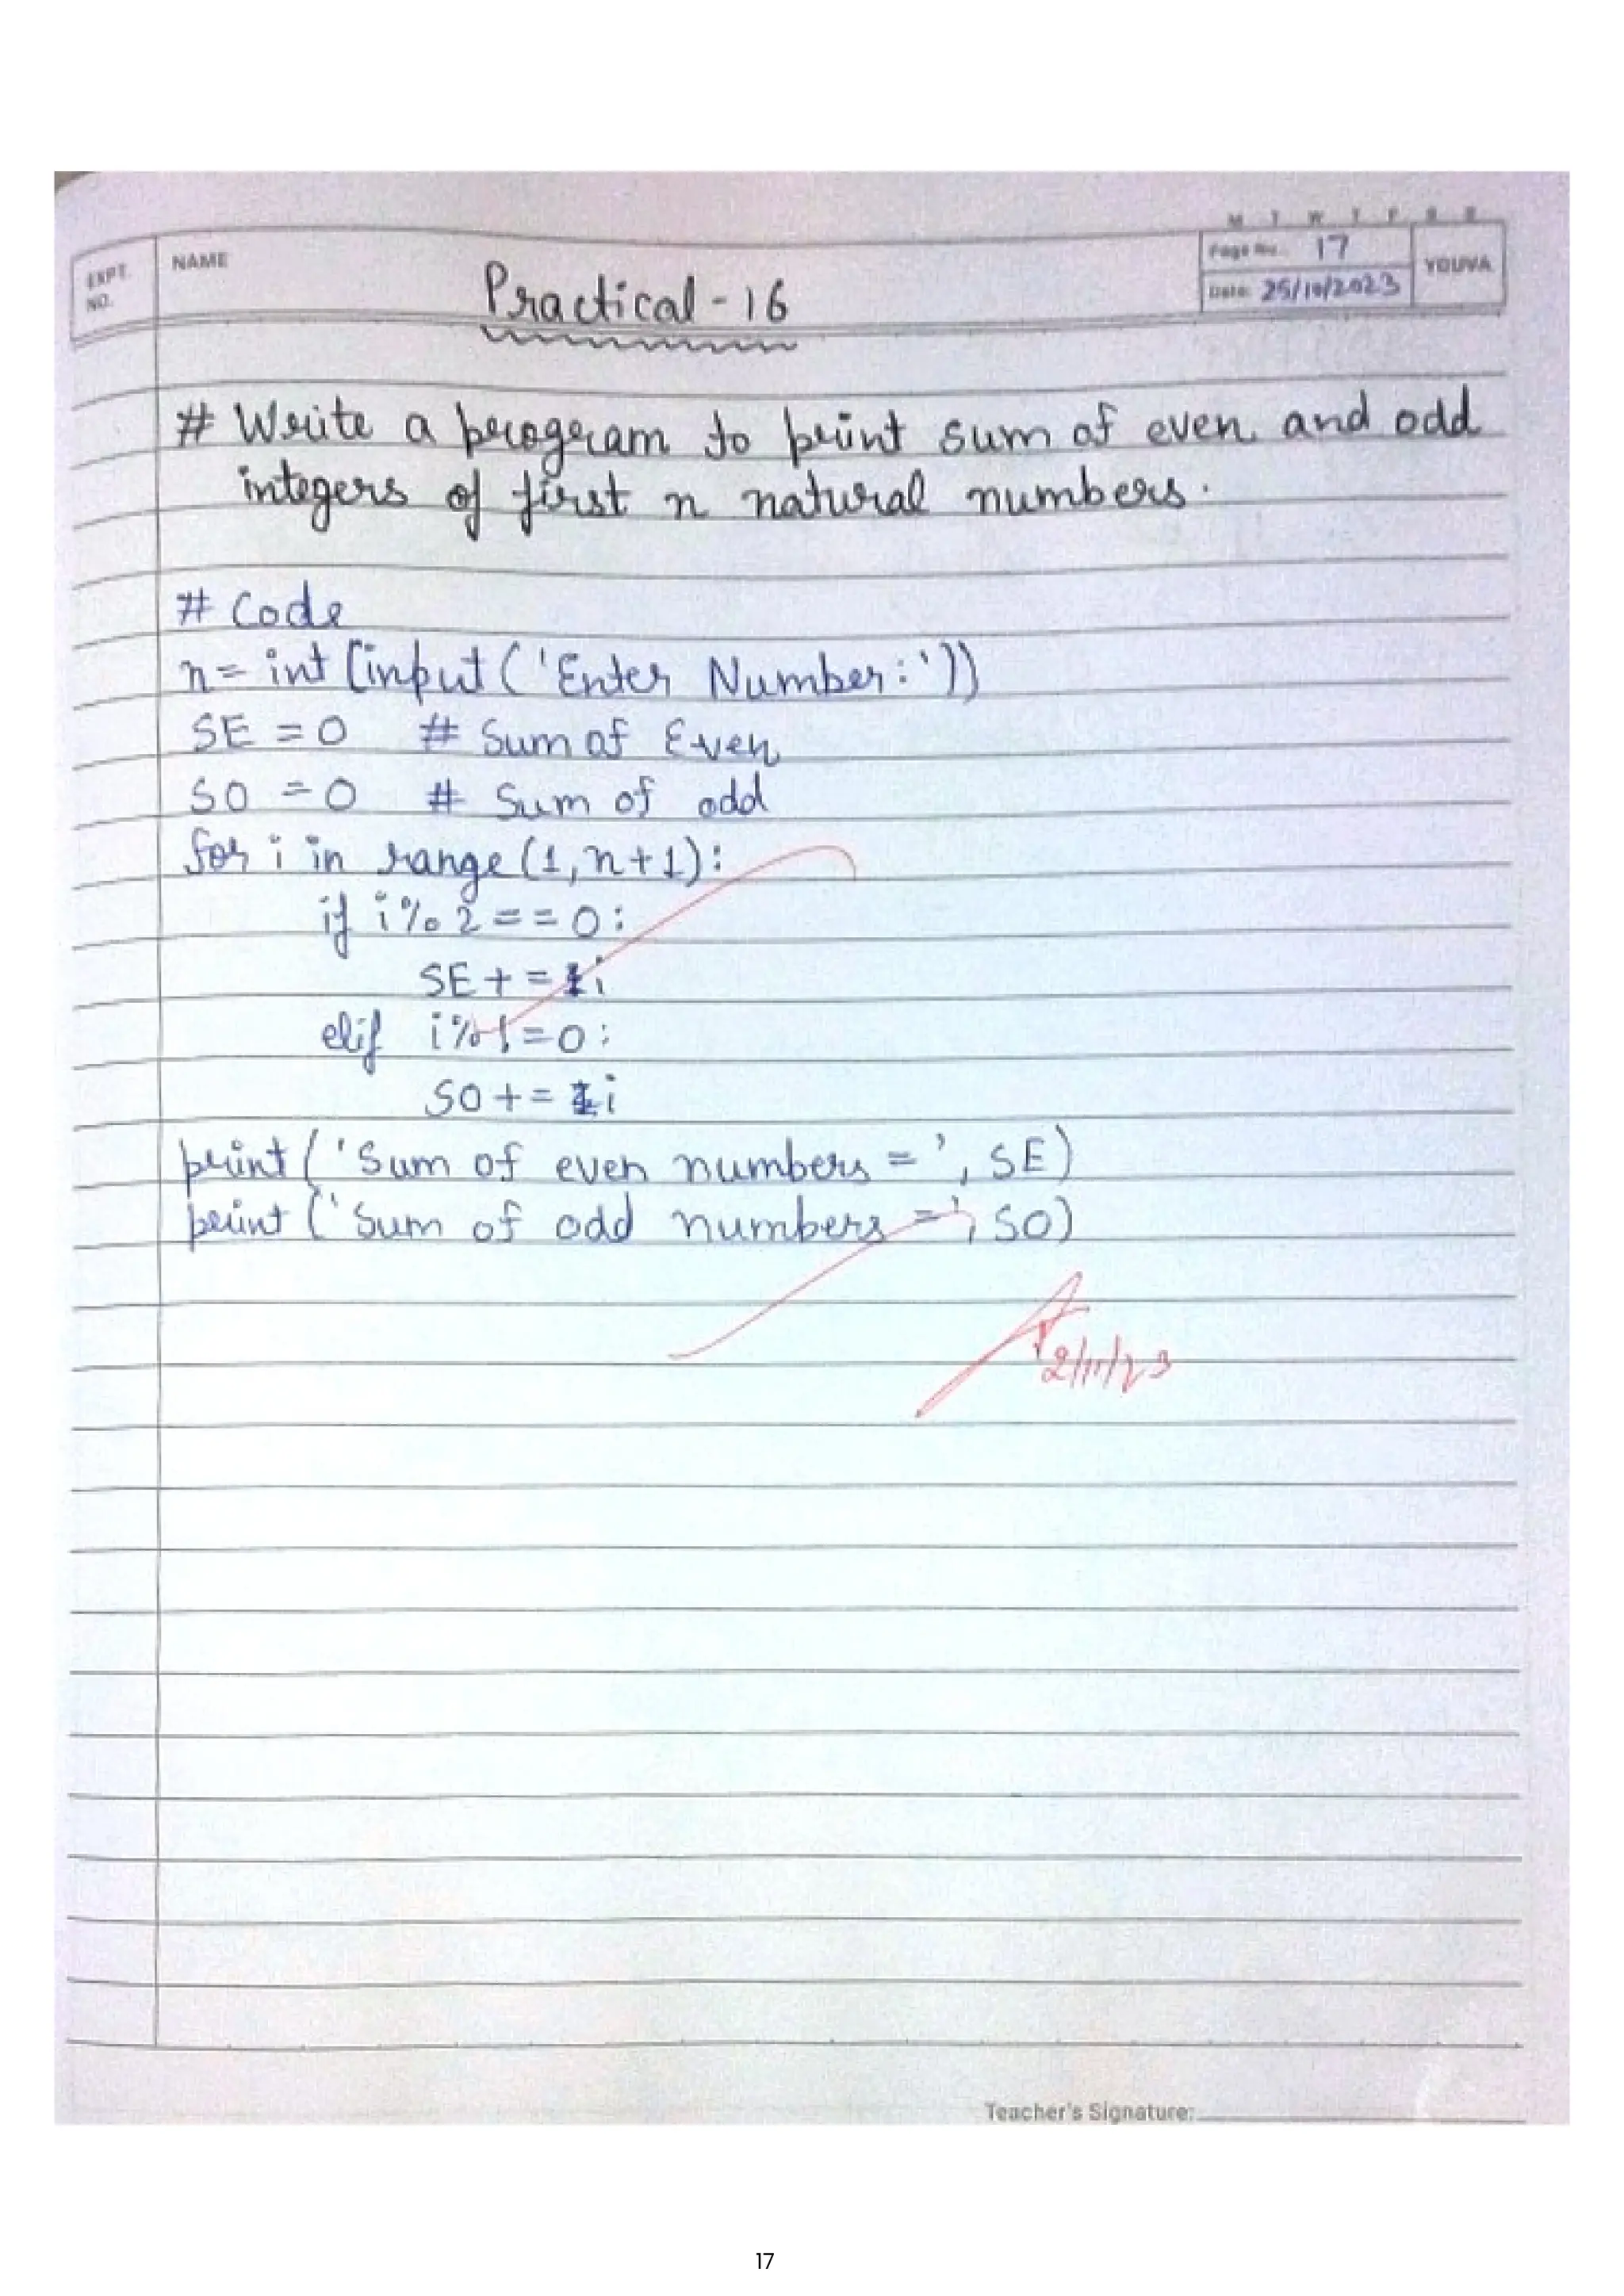 M T W T F S S
EXPT. NO.
NAME
Page No. 17
Date: 25/10/2023
YOUVA
Practical - 16
# Write a program to print sum of even and odd
integers of first n natural numbers.
# Code
n = int(input('Enter Number:'))
SE = 0 # Sum of Even
SO = 0 # Sum of odd
for i in range(1, n+1):
if i%2 == 0:
SE += i
elif i% != 0:
SO += i
print('Sum of even numbers =', SE)
print('Sum of odd numbers =', SO)
2/11/23
Teacher's Signature:
17